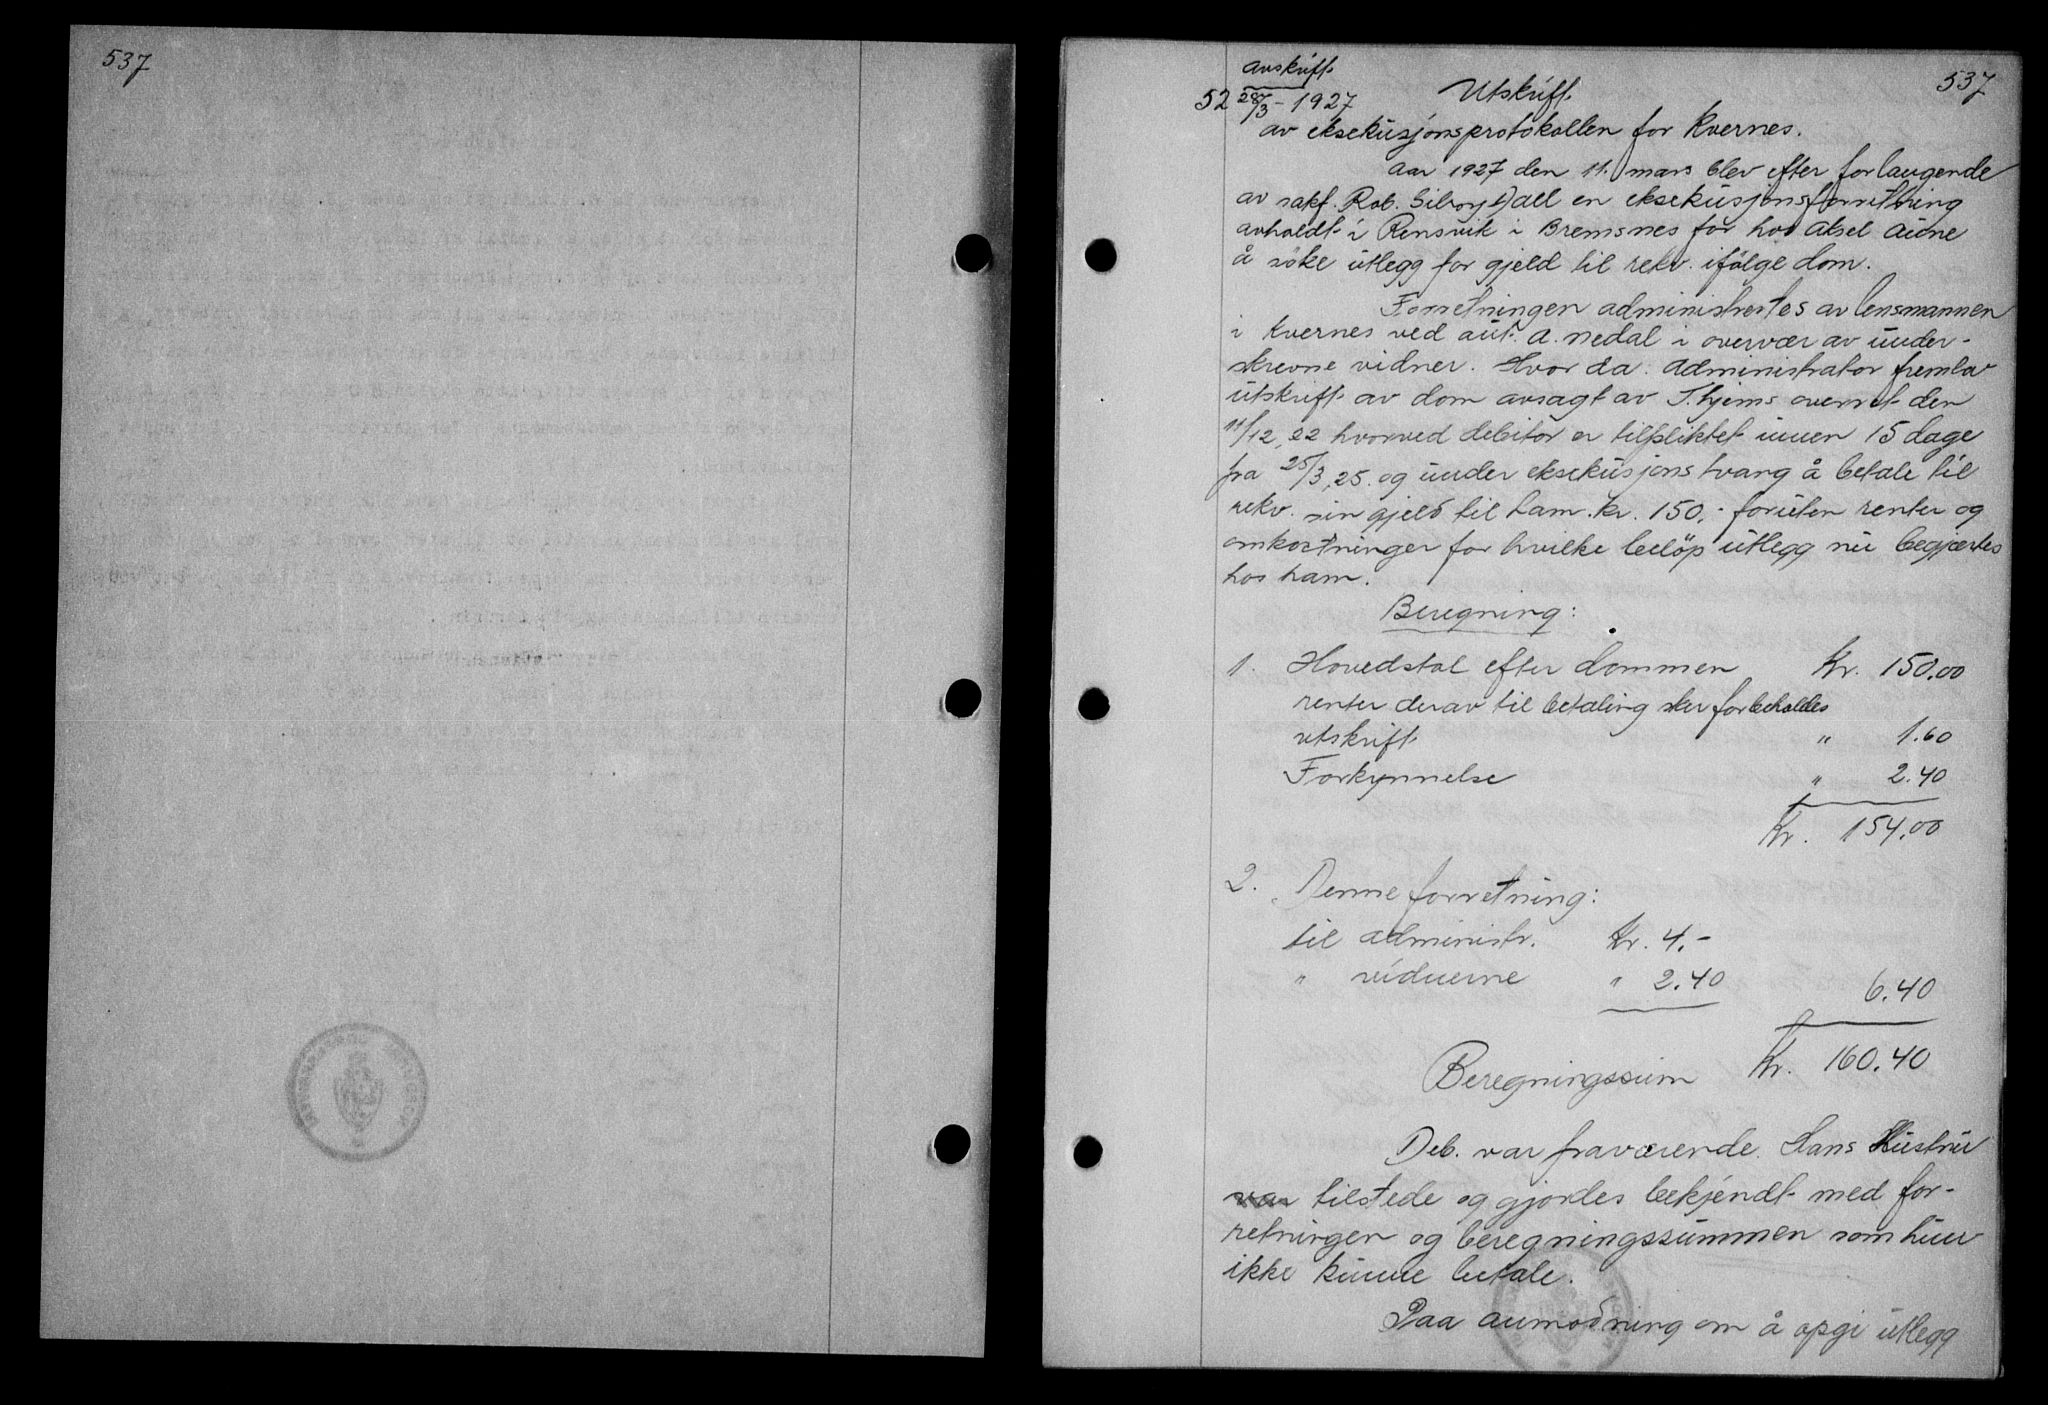 537
537
avskrift
52 28/3 - 1927
Utskrift
av eksekusjonsprotokollen for Kvernes.
Aar 1927 den 11. mars blev efter forlangende
av sakf. Rob. en eksekusjonsforretning
avholdt i Rensvik i Bremsnes for hos Aksel Aune
å söke utlegg for gjeld til rekv. ifölge dom.
Forretningen administrertes av lensmannen
i Kvernes ved aut. A. Nedal i overvær av under-
skrevne vidner. Hvor da. Administrator fremla
utskrift av dom avsagt av T.hjems overret den
11/12, 22 hvorved debitor er tilpliktet innen 15 dage
fra 25/3, 25. og under eksekusjons tvang å betale til
rekv. sin gjeld til ham. kr. 150,- foruten renter og
omkostninger for hvilke belöp utlegg nu begjærtes
hos ham.
Beregning:
1. Hovedstol efter dommen Kr. 150.00
renter derav til betaling sker forbeholdes
utskrift " 1.60
Forkynnelse " 2.40
Kr. 154.00
2. Denne forretning:
til administr. Kr. 4.-
" vidnerne " 2.40 6.40
Beregningssum Kr. 160.40
Deb. var fraværende. Hans Hustru
var tilstede og gjordes bekjendt med for-
retningen og beregningssummen som hun
ikke kunne betale.
Paa anmodning om å opgi utlegg